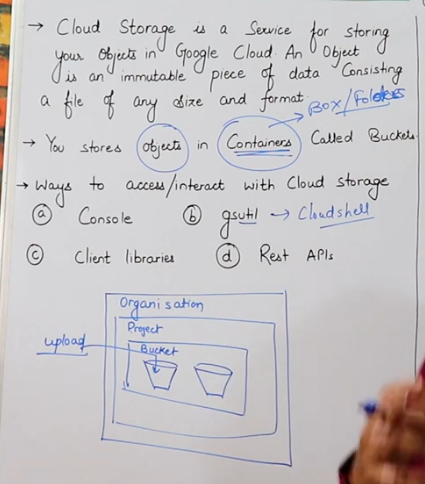 → Cloud Storage is a Service for storing
your Objects in Google Cloud. An Object
is an immutable piece of data Consisting
a file of any size and format
Box/Folders
→ You stores objects in Containers Called Buckets
→ Ways to access/interact with Cloud storage
ⓐ Console ⓑ gsutil → Cloudshell
ⓒ Client libraries ⓓ Rest APIs
Organisation
Project
upload
Bucket